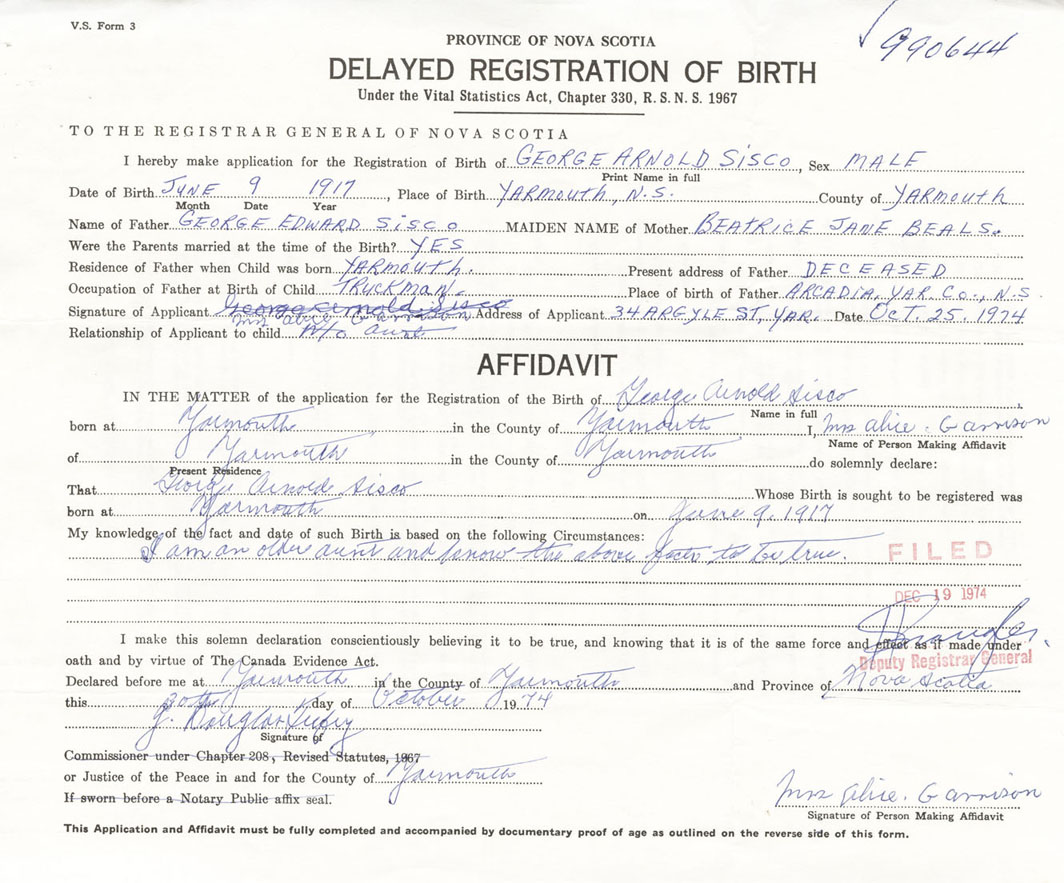 V.S. Form 3
990644
PROVINCE OF NOVA SCOTIA
DELAYED REGISTRATION OF BIRTH
Under the Vital Statistics Act, Chapter 330, R.S.N.S. 1967
TO THE REGISTRAR GENERAL OF NOVA SCOTIA
I hereby make application for the Registration of Birth of GEORGE ARNOLD SISCO, Sex MALE
Print Name in full
Date of Birth JUNE 9 1917, Place of Birth YARMOUTH, N.S. County of YARMOUTH
Month Date Year
Name of Father GEORGE EDWARD SISCO MAIDEN NAME of Mother BEATRICE JANE BEALS.
Were the Parents married at the time of the Birth? YES
Residence of Father when Child was born YARMOUTH. Present address of Father DECEASED
Occupation of Father at Birth of Child TRUCKMAN. Place of birth of Father ARCADIA, YAR CO., N.S.
Signature of Applicant George Arnold Sisco Address of Applicant 34 ARGYLE ST, YAR. Date OCT. 25. 1974
Mrs Alice Garrison
Relationship of Applicant to child Aunt
AFFIDAVIT
IN THE MATTER of the application for the Registration of the Birth of George Arnold Sisco,
Name in full
born at Yarmouth in the County of Yarmouth I, Mrs Alice. Garrison
Name of Person Making Affidavit
of Yarmouth in the County of Yarmouth do solemnly declare:
Present Residence
That George Arnold Sisco Whose Birth is sought to be registered was
born at Yarmouth on June 9, 1917
My knowledge of the fact and date of such Birth is based on the following Circumstances:
I am an older aunt and know the above facts to be true.
FILED
DEC 19 1974
I make this solemn declaration conscientiously believing it to be true, and knowing that it is of the same force and effect as if made under
oath and by virtue of The Canada Evidence Act.
Deputy Registrar General
Declared before me at Yarmouth in the County of Yarmouth and Province of Nova Scotia
this 30th day of October 1974
J. Douglas
Signature of
Commissioner under Chapter 208, Revised Statutes, 1967
or Justice of the Peace in and for the County of Yarmouth
If sworn before a Notary Public affix seal.
Mrs Alice. Garrison
Signature of Person Making Affidavit
This Application and Affidavit must be fully completed and accompanied by documentary proof of age as outlined on the reverse side of this form.